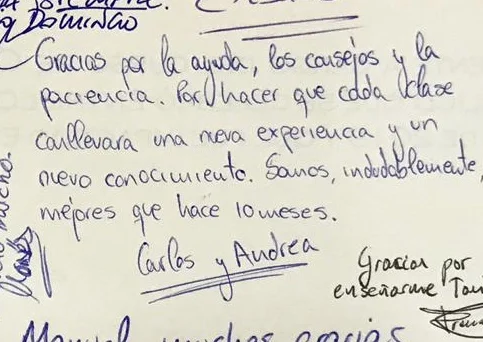 Domingo
Gracias por la ayuda, los consejos y la
paciencia. Por hacer que cada clase
conllevara una nueva experiencia y un
nuevo conocimiento. Somos, indudablemente,
mejores que hace 10 meses.
Carlos y Andrea
Gracias por
enseñarme
Manuel muchas gracias